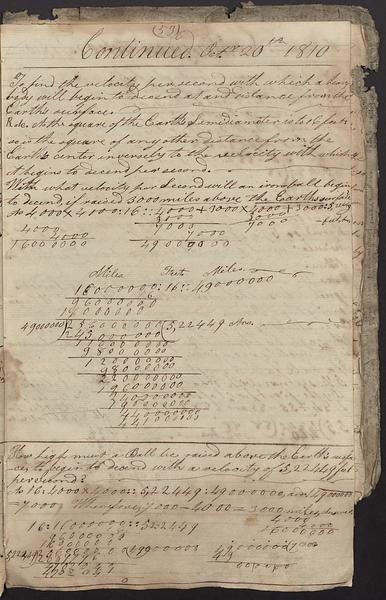 (53)
Continued. Oct.r 20th 1810
To find the velocity per second with which a heavy
body will begin to decend at and distance from the
Earths surface
Rule. As the square of the Earths semidiameter is to 16 feet
so is the square of any other distance from the
Earths center inversly to the velocity with which
it begins to decend per second.
With what velocity per second will an iron ball begin
to decend, if raised 3000 miles above the Earths surface
As 4000 × 4000 : 16 :: 4000 + 3000 × 4000 + 3000 : 5,22449
4000 3000 3000 feet
4000 7000 7000
16000000 49000000
Miles Feet Miles
16000000 : 16 :: 49000000
16
96000000
16000000
49000000)256000000(5,22449 Ans.
245000000
110000000
98000000
120000000
98000000
220000000
196000000
240000000
196000000
440000000
441000000
How high must a Ball be raised above the Earths surface
to begin to decend with a velocity of 5,22449 feet
per second?
As 16 : 4000 × 4000 :: 5,22449 : 49000000, and √49000000
= 7000, Therefore, 7000 - 4000 = 3000 miles,
16 : 16000000 :: 5,22449
4000
4000
16000000
16
96000000
16000000
5,22449)256000000(49000000